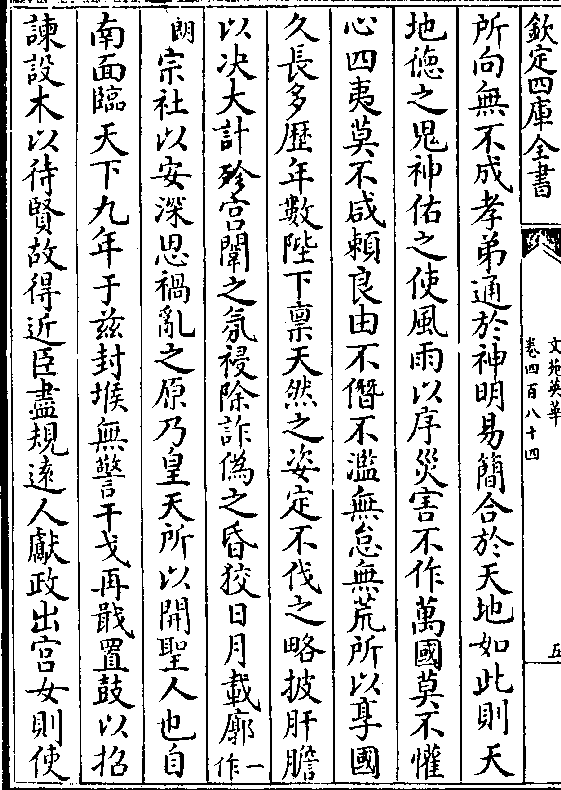 欽定四庫全書
文苑英華
卷四百八十四
五
所向無不成孝弟通於神明易簡合於天地如此則天
地徳之鬼神佑之使風雨以序災害不作萬國莫不懽
心四夷莫不咸頼良由不僭不濫無怠無荒所以享國
久長多歴年數陛下禀天然之姿定不伐之略披肝膽
以决大計殄宫闈之氛祲除詐偽之昏狡日月載廓一作
朗宗社以安深思禍亂之原乃皇天所以開聖人也自
南面臨天下九年于兹封堠無警干戈再戢置鼓以招
諫設木以待賢故得近臣盡規逺人獻政出宫女則使